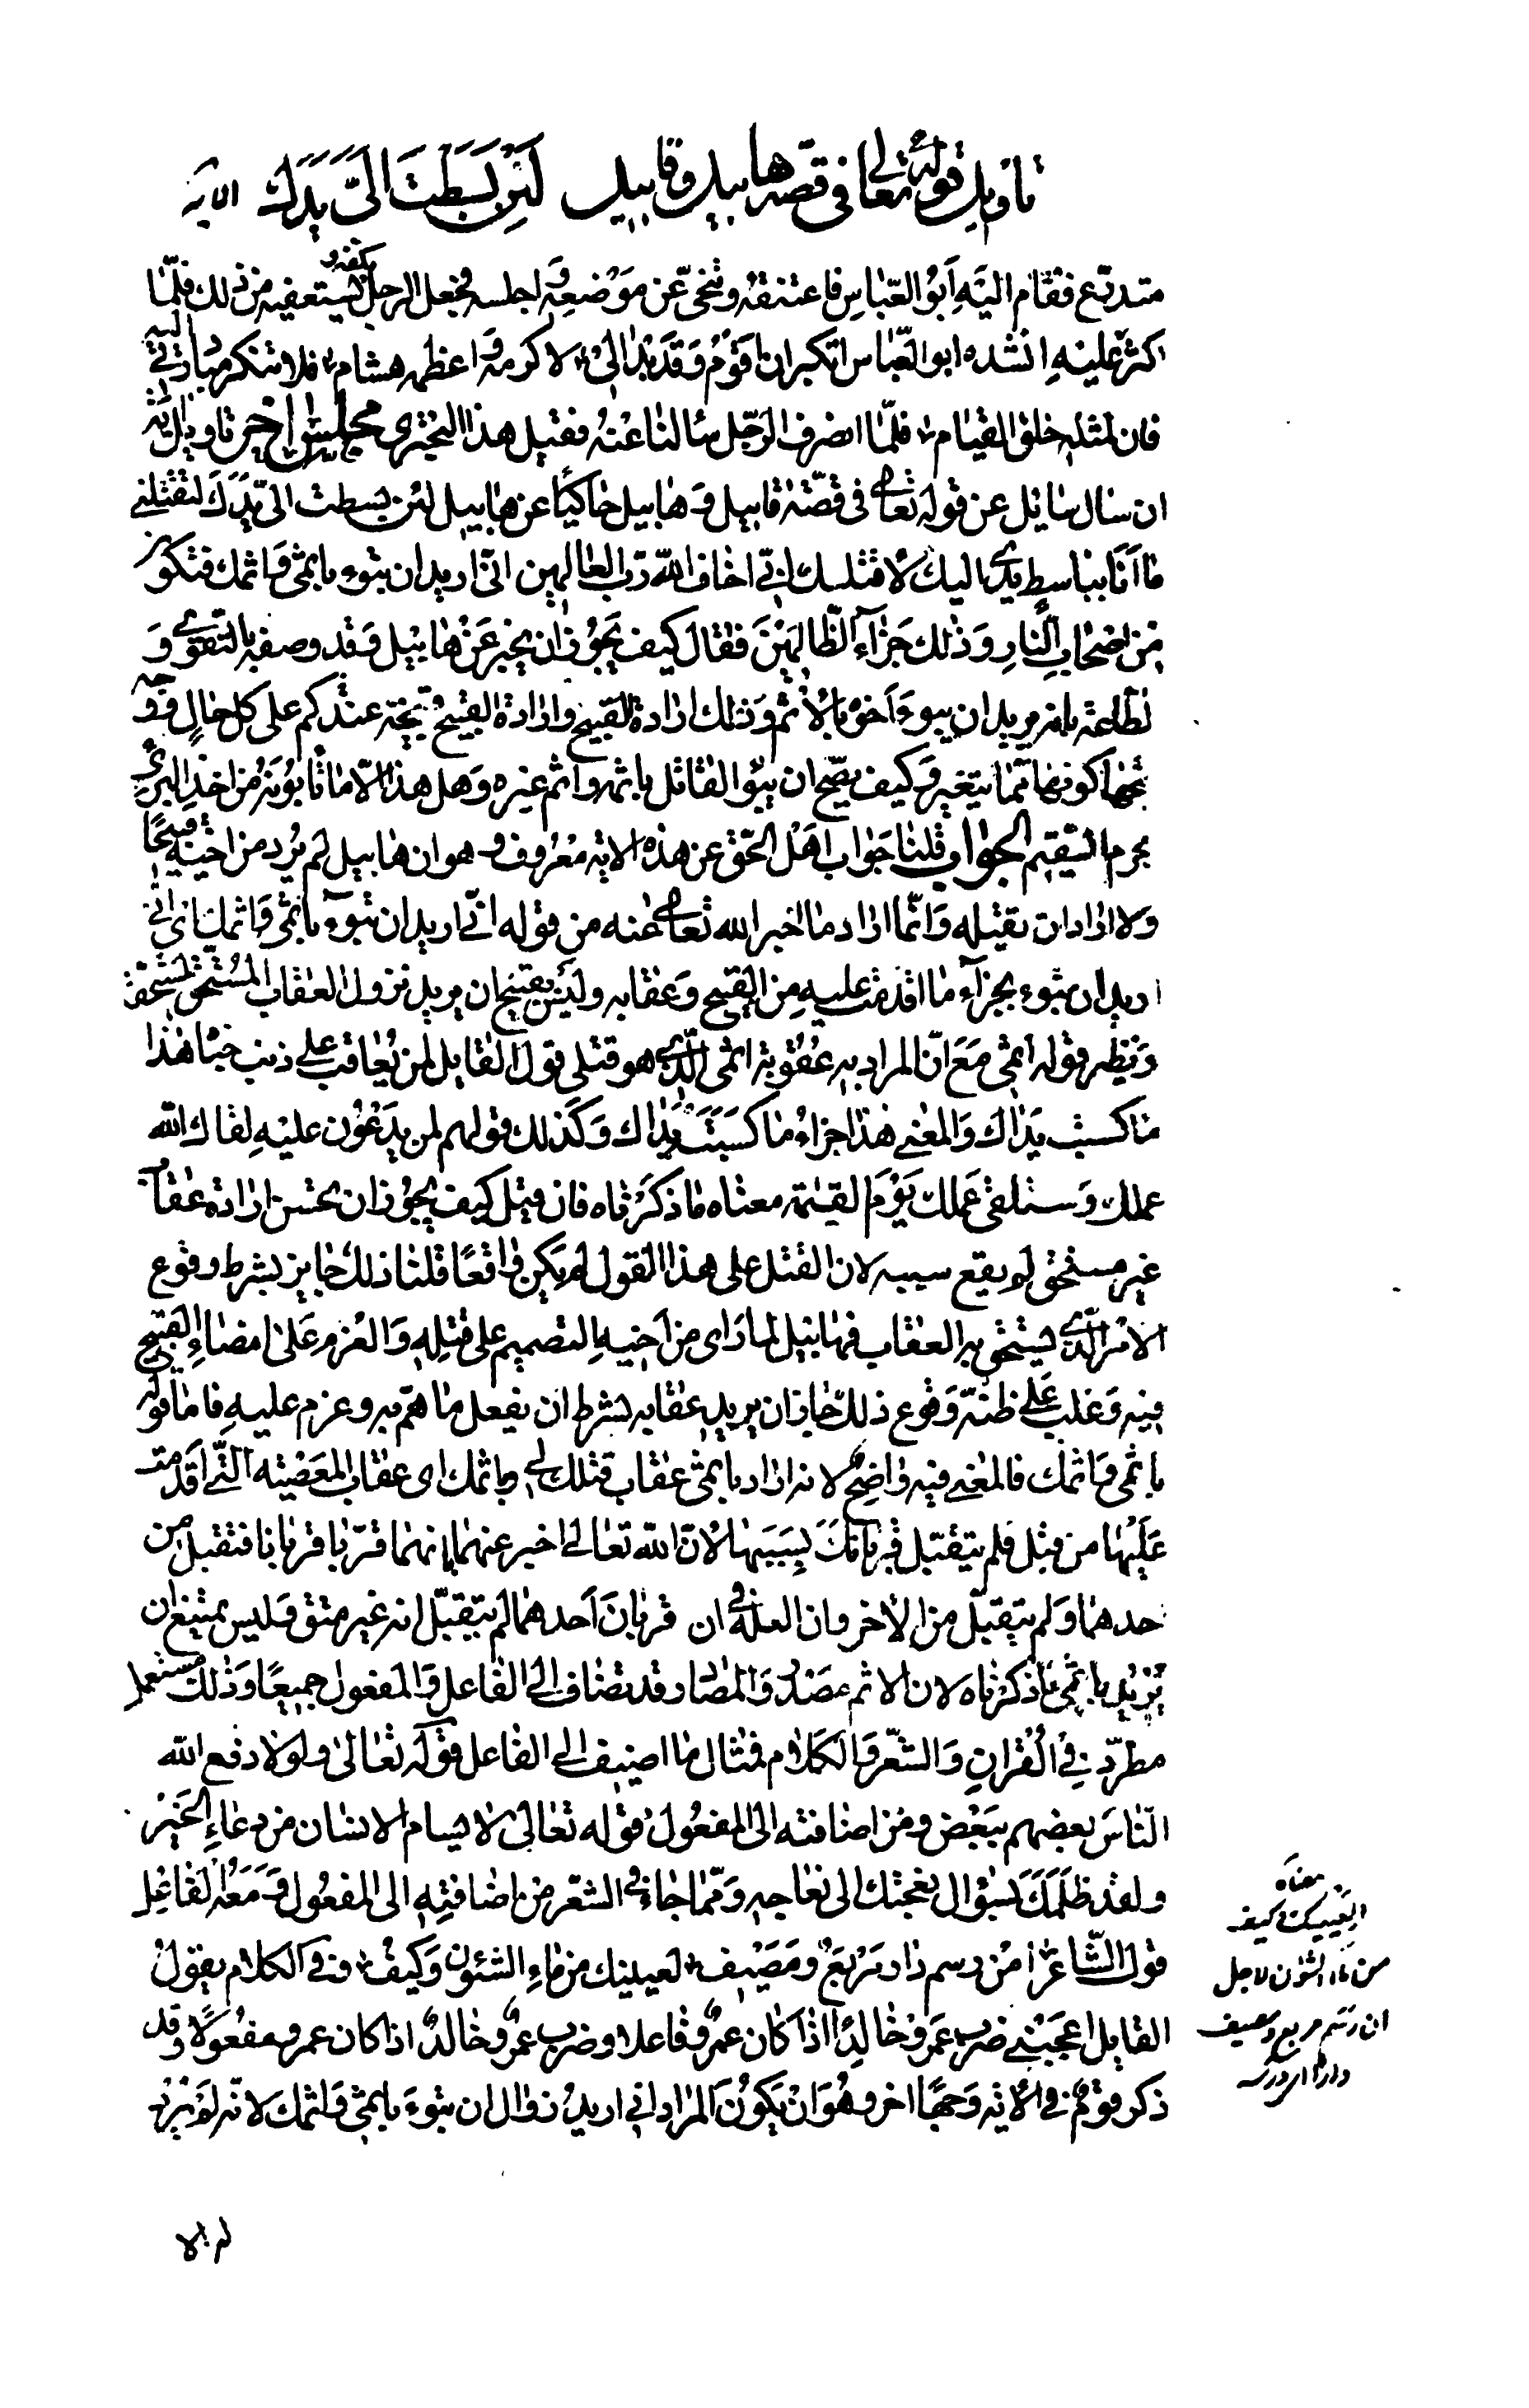 تاويل قوله تعالى فى قصه هابيل وقابيل لَئِن بَسَطتَ اِلَىَّ يَدَكَ الايه
متدرع فقام اليه اَبوُ العبّاسِ فاعتنقه وتنحّى عن مَوْضعِهِ واجلسه فجعل الرجل يكفه ويستعفيه من ذلك فلمّا
اكثر عليْهِ انشده ابو العبّاس اتنكر ان اقوم وَقد بدا لىْ لاكرمه واعظمه هشام فلا تنكر مبادرتى اليه
فان لمثله خلق القيام فلمّا انصرف الرّجل سالنا عنْهُ فقيل هذا البحترى مجلس اخر تاويل ايه
ان سال سايل عن قوله تعالى فى قصّة قابيل وَهابيل حاكيًا عن هابيل لئن بسطت الىّ يَدَكَ لتقتلنى
ما اَنَا بباسطٍ يدى اليك لاقتلك انى اخاف الله ربّ العالمين انى اريد ان تبوء باثمى وَاثمك فتكون
مِن اصحاب النارِ وَذٰلك جَزآءُ الظّالمينَ فقالَ كيف يجوُز ان يخبر عَنْ هابيل وَقد وصفه بالتقوى وَ
لطاعة بانه يريد ان يبوء اَخوْه بالاثم وَذلك ارادة القبيح وارادة القبيح قبيحة عندكم على كل حالٍ وَوجه
قبحها كونها ممّا يتغير وَكيف يصحّ ان يبوُ القاتل باثمه واثم غيره وَهل هذا الا ما تابونه من اخذ البرى
بجرم السّقيم الجواب قلنا جَواب اهَل الحق عن هذه الايه معْرُوف وهو ان هابيل لم يُرد من اخيْهِ قبيحًا
وَلا اراد ان يقتله وَانّما اراد ما اخبر الله تعالى عنه من قوله انى اريد ان تبوءَ باثمى وَاثمك اى انى
اريد ان تبوء بجزآء ما اقدمت عليه مِن القبيح وَعقابه وليس بقبيح ان يريد نزول العقاب المُستحق لمستحقه
وَنظير قوله اثمى مَعَ انّ المراد به عُقوْبة اثمى الّذى هو قتلى قول القايل لمن يُعاقب على ذنب جَناه هذا
مَا كسبت يَداك وَالمعنى هٰذا جزاءُ ما كسَبَتْ يَداك وَكَذلك قولهم لمن يدَعُون عليْهِ لقاك الله
عملك وَستلقى عَملك يَوْمَ القيمة معناه ما ذكَرْناه فان قيل كيف يجوُز ان يحسن ارادة عقاب
غير مستحق لم يقع سببه لان القتل على هذا القول لم يَكن واقعًا قلنا ذلك جايز بشرط وقوع
الامْر الّذى يستحق به العقاب فهابيل لما رَاى من اخيهِ التصميم على قتلهِ وَالعزم عَلى امضاءِ القبيح
فيه وَغلب عَلى ظنّه وَقوع ذلك جاز ان يريد عقابه بشرط ان يفعل ما همّ به وعزم عليهِ فاما قوله
باثمى وَاثمك فالمعنى فيه واضحٌ لانه اراد باثمى عقاب قتلك لى وباثمك اى عقاب المعَصْيته التى اقدمت
عَليْها من قبْل فلم يتقبّل قربانكَ بِسَبَبها لانّ الله تعالى اخبر عنهما بانهما قرّبا قربانا فتقبل من
حدهما وَلم يتقبّل من الاخر وان العلة فى ان قربانَ اَحدهما لم يتقبّل انه غير متق وَليس بمتنع ان
يُرْيد باثمى ما ذكرْناه لان الاثم مصدر وَالمصادر قد تضاف الى الفاعل وَالمفعول جميعًا وَذٰلك مستعمل
مطرد فِى القران وَالشّعر وَالكلام فمثال ما اضيف الى الفاعل قوله تعالى ولولا دفع الله
النّاسَ بعضهم بِبَعْض ومن اضافته الى المفعُول قوله تعالى لا يسام الانسان من دعاءِ الخَيْر
ولقد ظلَمَكَ بسؤال نعجتك الى نعاجه وَممّا جاء فى الشعر من اضافتِهِ الى المفعُول وَمَعَهُ الفاعل
قول الشّاعر امن رسم دار مَرْبَعٌ ومَصَيْف لعينيك من ماءِ الشئون وَكيفُ وفى الكلام يقولُ
القايل اعجَبْنى ضرب عَمرو خالدًا اذا كان عمرٌو فاعلا وضرب عمرٍو خالدٌ اذا كان عمرو مفعُولا وقد
ذكر قوْمٌ فى الايه وَجهًا اخر وهُوَ انْ يَكوُنَ المراد انى اريدُ زوال ان تبوءَ باثمى وَاثمك لانه لمْ يُرْد
معناه
العينيك وكيف
من ماء الشئون لاجل
ان رسم مربع ومصيف
دارا
له الا